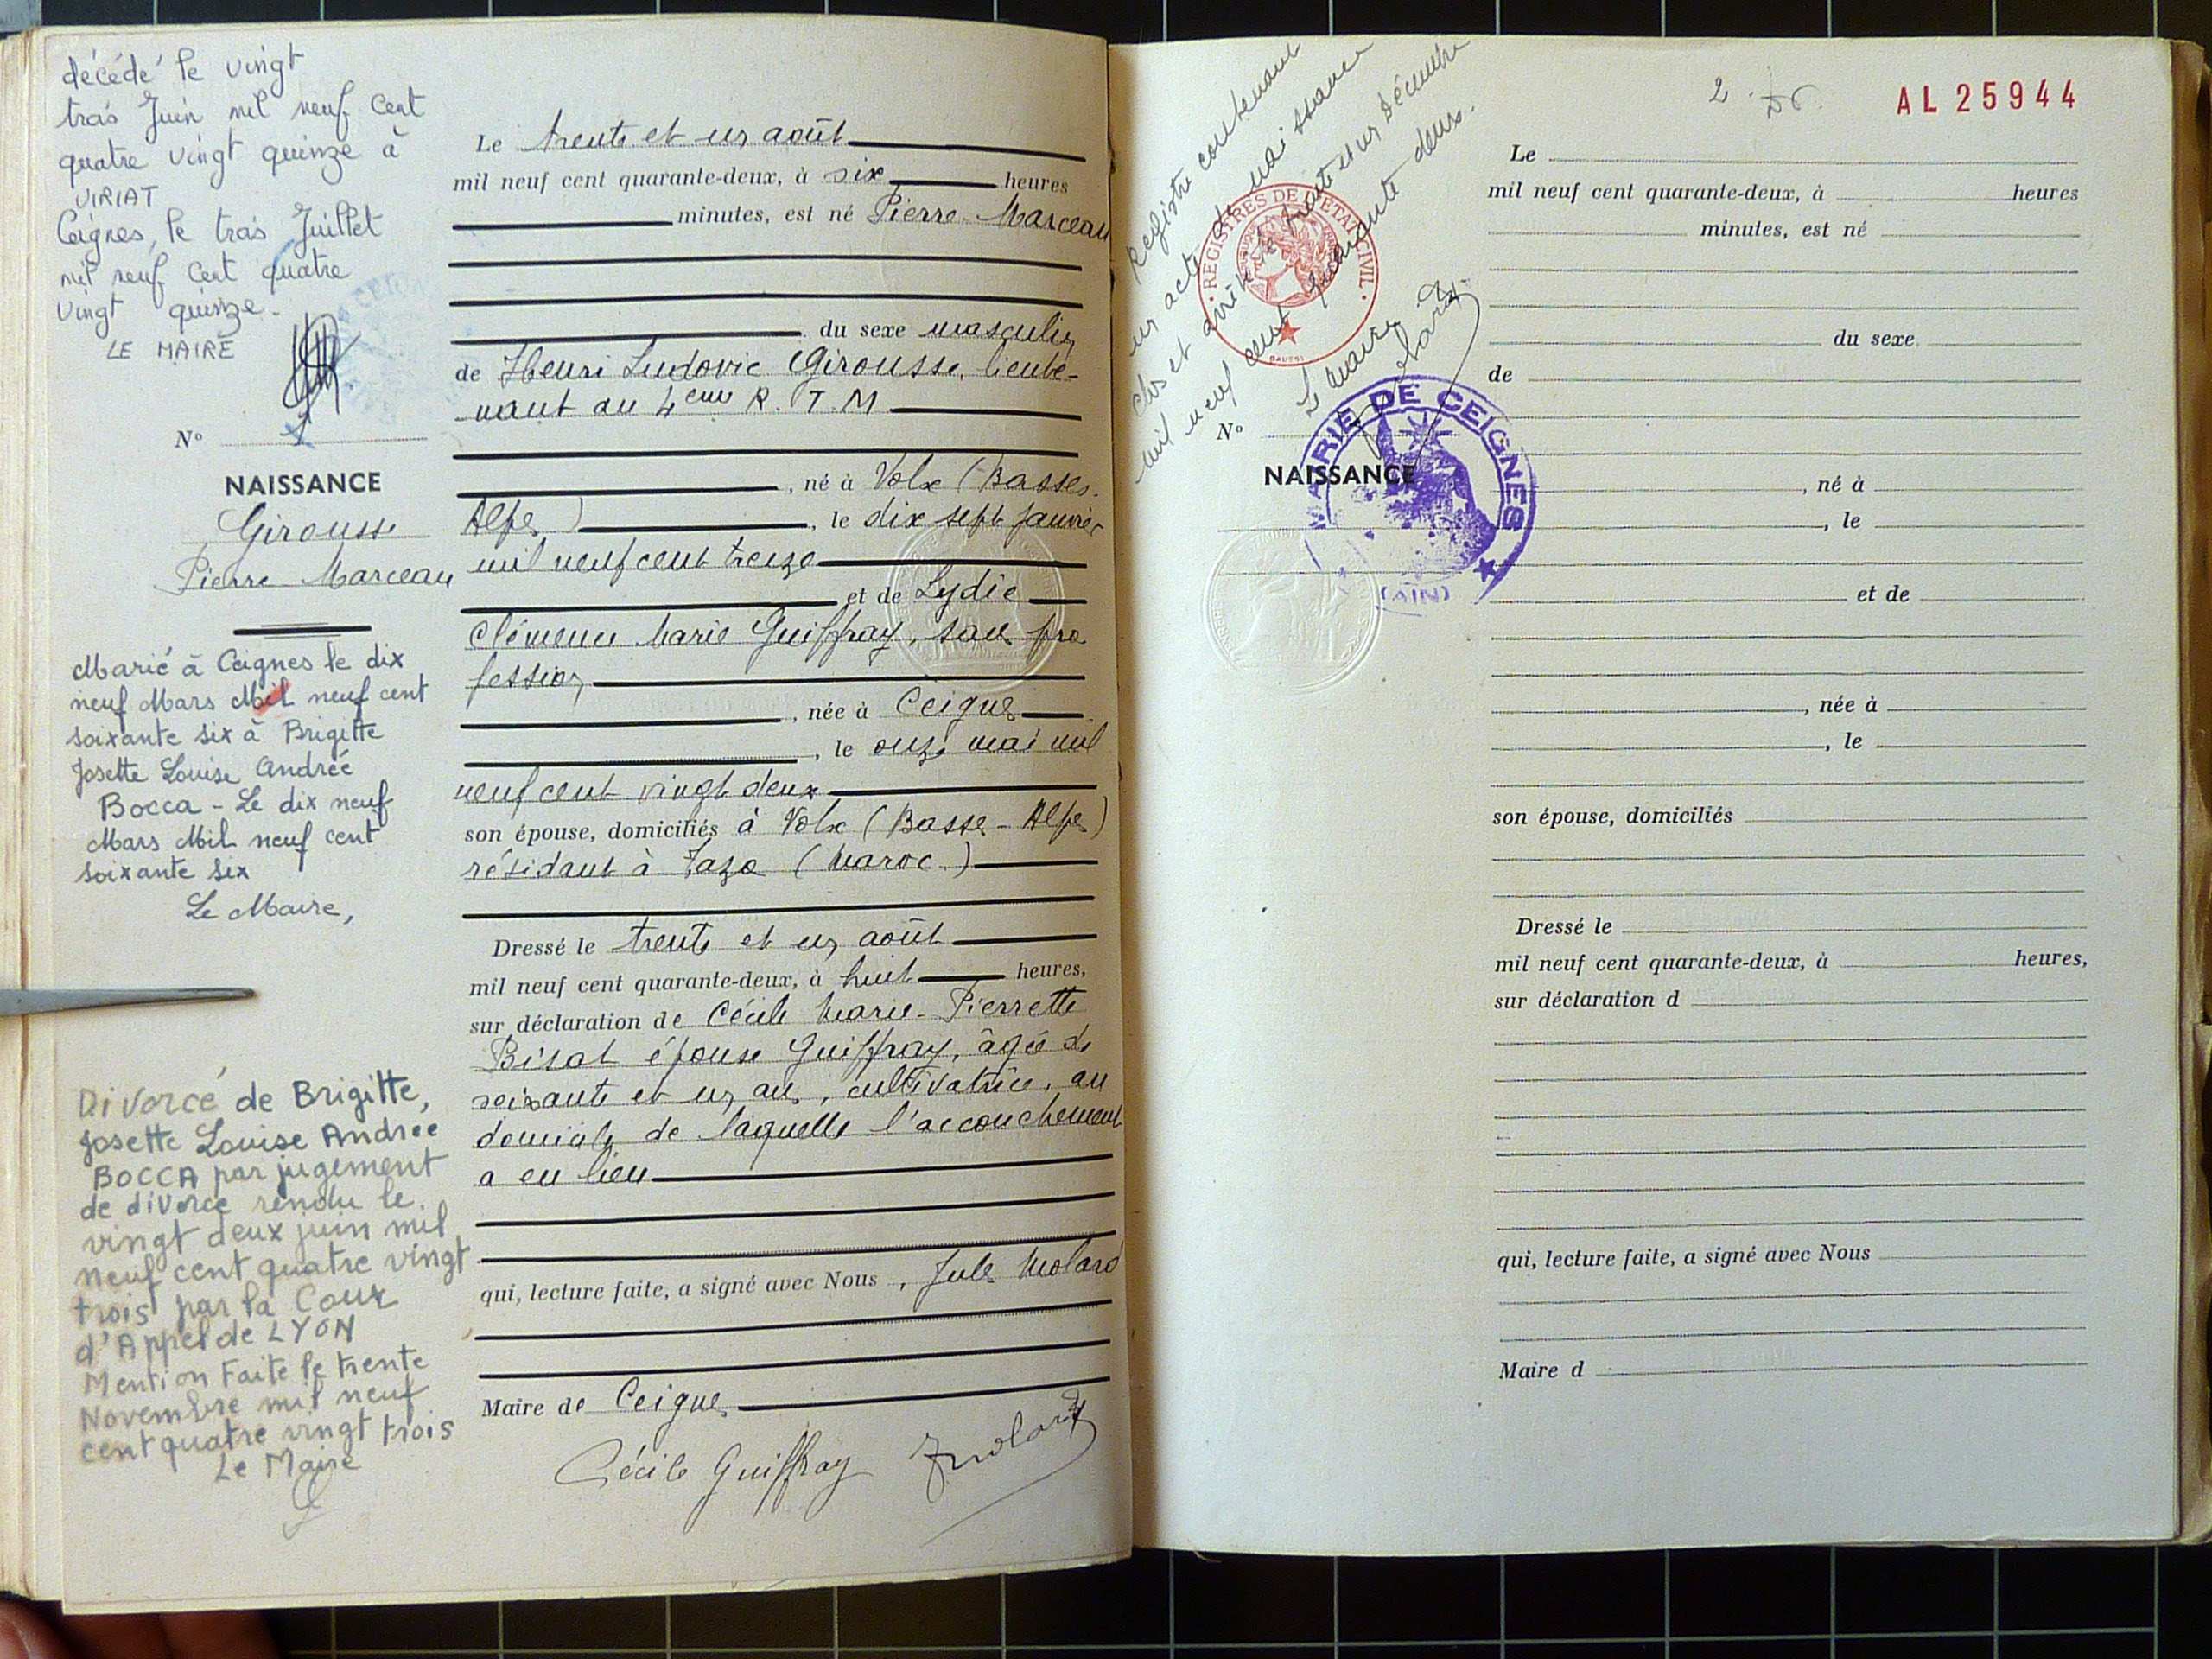 décédé le vingt
trois Juin mil neuf cent
quatre vingt quinze à
VIRIAT
Ceignes, le trois Juillet
mil neuf cent quatre
vingt quinze.
LE MAIRE
Nº 1
NAISSANCE
Girousse
Pierre-Marceau
Marié à Ceignes le dix
neuf Mars Mil neuf cent
soixante six à Brigitte
Josette Louise Andrée
Bocca - Le dix neuf
Mars Mil neuf cent
soixante six
Le Maire,
Divorcé de Brigitte,
Josette Louise Andrée
BOCCA par jugement
de divorce rendu le
vingt deux juin mil
neuf cent quatre vingt
trois par la Cour
d'Appel de LYON
Mention Faite le trente
Novembre mil neuf
cent quatre vingt trois
Le Maire
Le trente et un août
mil neuf cent quarante-deux, à six heures
minutes, est né Pierre-Marceau
du sexe masculin
de Henri Ludovic Girousse, lieute-
nant au 4eme R. T. M
, né à Volx (Basses-
Alpes), le dix sept janvier
mil neuf cent treize
et de Lydie
Clémence Marie Guiffray, sans pro
fession
, née à Ceignes
, le onze mai mil
neuf cent vingt deux
son épouse, domiciliés à Volx (Basses-Alpes)
résidant à Taza (Maroc)
Dressé le trente et un août
mil neuf cent quarante-deux, à huit heures,
sur déclaration de Cécile Marie-Pierrette
Bisat épouse Guiffray, âgée de
soixante et un ans, cultivatrice, au
domicile de laquelle l'accouchement
a eu lieu
qui, lecture faite, a signé avec Nous, Jules Molard
Maire de Ceignes
Cécile Guiffray JMolard
Registre contenant
un acte de naissance
clos et arrêté le trente et un Décembre
mil neuf cent quarante deux.
Le Maire
JMolard
REGISTRES DE L'ETAT CIVIL
MAIRIE DE CEIGNES
(AIN)
2
AL 25944
Nº
NAISSANCE
Le
mil neuf cent quarante-deux, à heures
minutes, est né
du sexe
de
, né à
, le
et de
, née à
, le
son épouse, domiciliés
Dressé le
mil neuf cent quarante-deux, à heures,
sur déclaration d
qui, lecture faite, a signé avec Nous
Maire d